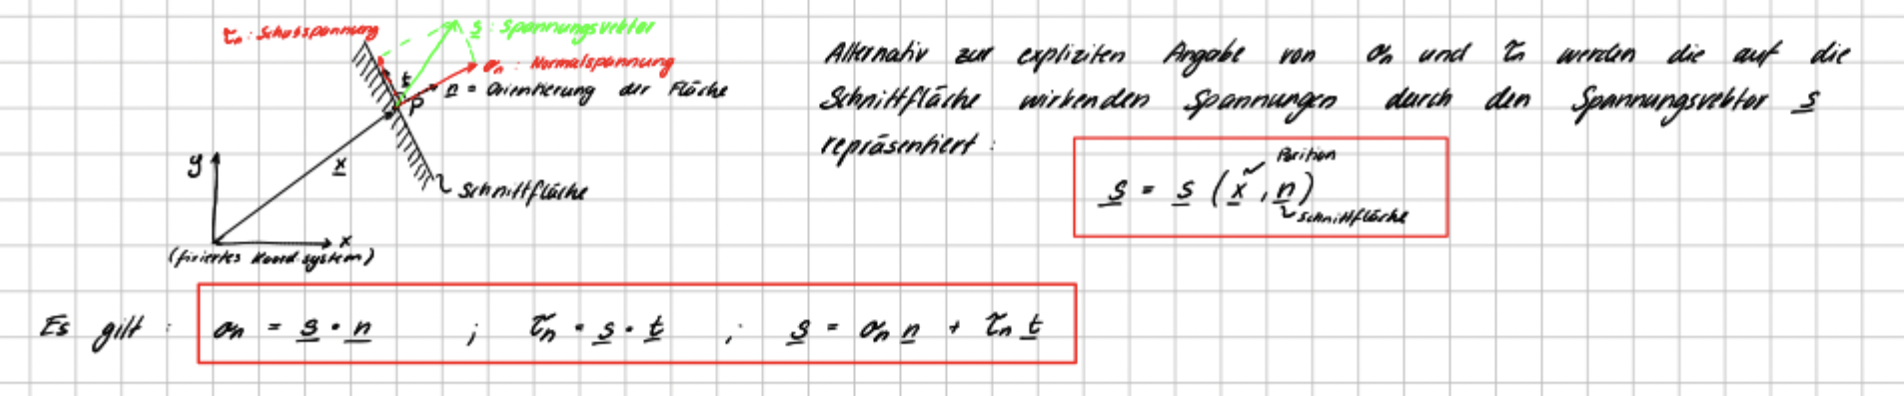 τn : Schubspannung
s : Spannungsvektor
σn : Normalspannung
t
n = Orientierung der Fläche
P
x
y
Schnittfläche
x
(fixiertes Koord.system)
Alternativ zur expliziten Angabe von σn und τn werden die auf die
Schnittfläche wirkenden Spannungen durch den Spannungsvektor s
repräsentiert :
Position
s = s (x, n)
Schnittfläche
Es gilt : σn = s · n ; τn = s · t ; s = σn n + τn t